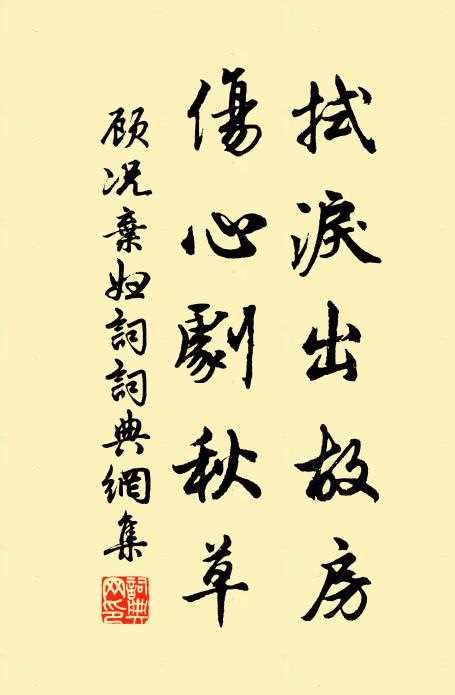 拭淚出故房
傷心劇秋草
顧况棄婦詞詞典網集
詞典網印